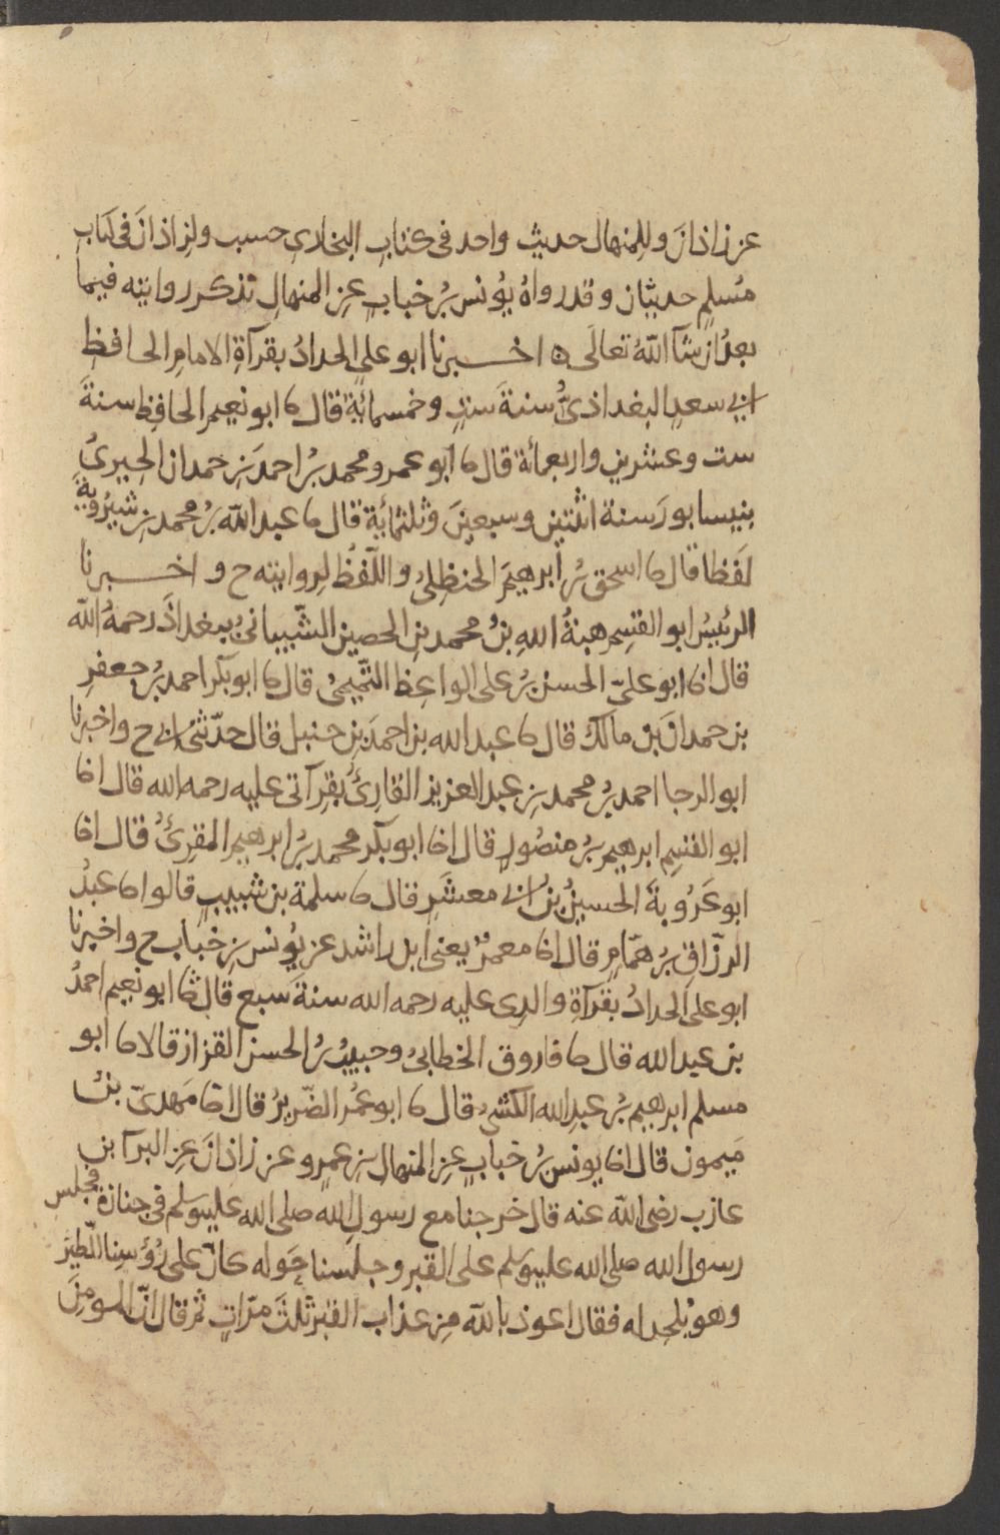 عن زاذانَ وللمنهال حديث واحد فى كتابِ البخارى حسب ولزاذانَ فى كتاب
مُسلمٍ حديثان وقد رواهُ يُونس بنُ خبابٍ عن المنهالِ نذكر روايته فيما
بعدُ ان شآ اللهُ تعالَى ه اخــبرنا ابو على الحدادُ بقرآةِ الامامِ الحافظِ
ابى سعدٍ البغداذىُّ سنةَ ستٍ وخمسمائةٍ قال ثنا ابو نعيم الحافظ سنةَ
ست وعشرين واربعمائة قال ثنا ابو عمرو محمد بنُ احمدَ بنِ حمدان الحِيرىُ
بنيسابورَ سنة اثنتين وسبعينَ وثلثمائةٍ قال ثنا عبد اللهِ بنُ محمد بنِ شيرُويةَ
لفظا قال ثنا اسحق بنُ ابرهيمَ الحنظلىُ واللفظُ لروايته ح و اخــبرنا
الرئيسُ ابو القسِم هبةُ اللهِ بنُ محمد بنِ الحصين الشّيبانىُ ببغداذَ رحمهُ اللّه
قال انا ابو علىّ الحسن بنُ على الواعظ التّميمىُ قال ثنا ابو بكر احمد بنُ جعفرِ
بن حمدانَ بن مالك قال ثنا عبد الله بن احمدَ بنِ حنبل قال حدّثنى ابى ح واخبرنا
ابو الرجا احمد بنُ محمد بنِ عبد العزيز القارِئُ بقرآتى عليه رحمه الله قال انا
ابو القسِم ابرهيم بنُ منصُورٍ قال انا ابو بكر محمد بنُ ابرهيم المقرِئُ قال انا
ابو عَرُوبةَ الحسينُ بنُ ابى معشَرٍ قال ثنا سلمة بن شبيبٍ قالوا ثنا عبدُ
الرزّاقِ بنُ همّامٍ قال انا معمرٌ يعنى ابن راشد عن يُونس بنِ خبّاب ح واخبرنا
ابو على الحدادُ بقرآةِ والدِى عليه رحمه الله سنةَ سبع قال ثنا ابو نعيم احمدُ
بن عبد الله قال ثنا فاروق الخطابىُ وحبيبُ بنُ الحسن القزاز قالا ثنا ابو
مسلم ابرهيم بنُ عبدِ الله الكشىُ قال ثنا ابو عمُر الضّريرُ قال انا مَهدىّ بنُ
مَيمون قال انا يونس بنُ خبابٍ عن المنهالِ بنِ عمرٍو عن زاذانَ عن البرآ بن
عازب رضى اللّه عنه قال خرجنا مع رسولِ الله صلى الله عليه وسلم فى جنازةٍ فجلس
رسول الله صلى الله عليه وسلم على القبر وجلَسنا حَوله كانّ على رُؤسِنا الطيرَ
وهو يُلحد له فقال اعوذ باللّه مِن عذاب القبر ثلثَ مرّاتٍ ثم قال انّ المومنَ